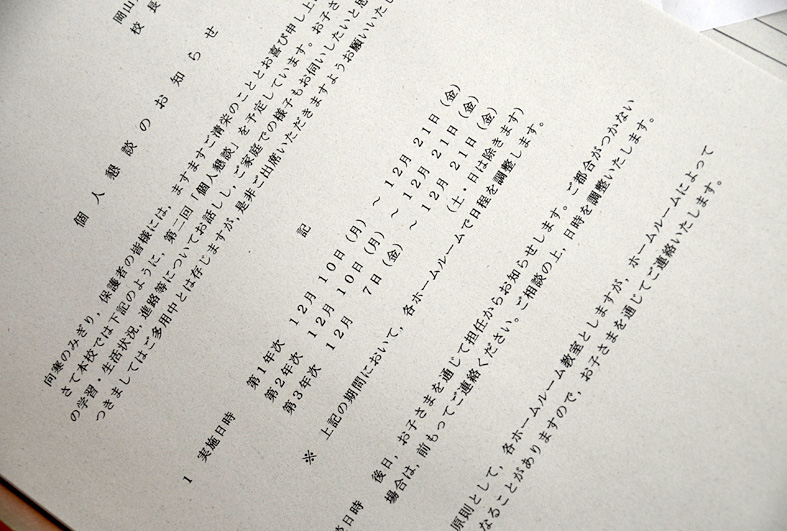 岡山
校長
個人懇談のお知らせ
向寒のみぎり，保護者の皆様には，ますますご清栄のこととお喜び申し上
さて本校では下記のように，第二回「個人懇談」を予定しています。お子さ
の学習・生活状況，進路等についてお話しし，ご家庭での様子もお伺いしたいと思
つきましてはご多用中とは存じますが，是非ご出席いただきますようお願いいたし
記
1 実施日時
第１年次 １２月 １０日（月）～ １２月 ２１日（金）
第２年次 １２月 １０日（月）～ １２月 ２１日（金）
第３年次 １２月 ７日（金）～ １２月 ２１日（金）
（土・日は除きます）
※ 上記の期間において，各ホームルームで日程を調整します。
談日時
後日，お子さまを通じて担任からお知らせします。ご都合がつかない
場合は，前もってご連絡ください。ご相談の上，日時を調整いたします。
原則として，各ホームルーム教室としますが，ホームルームによって
なることがありますので，お子さまを通じてご連絡いたします。